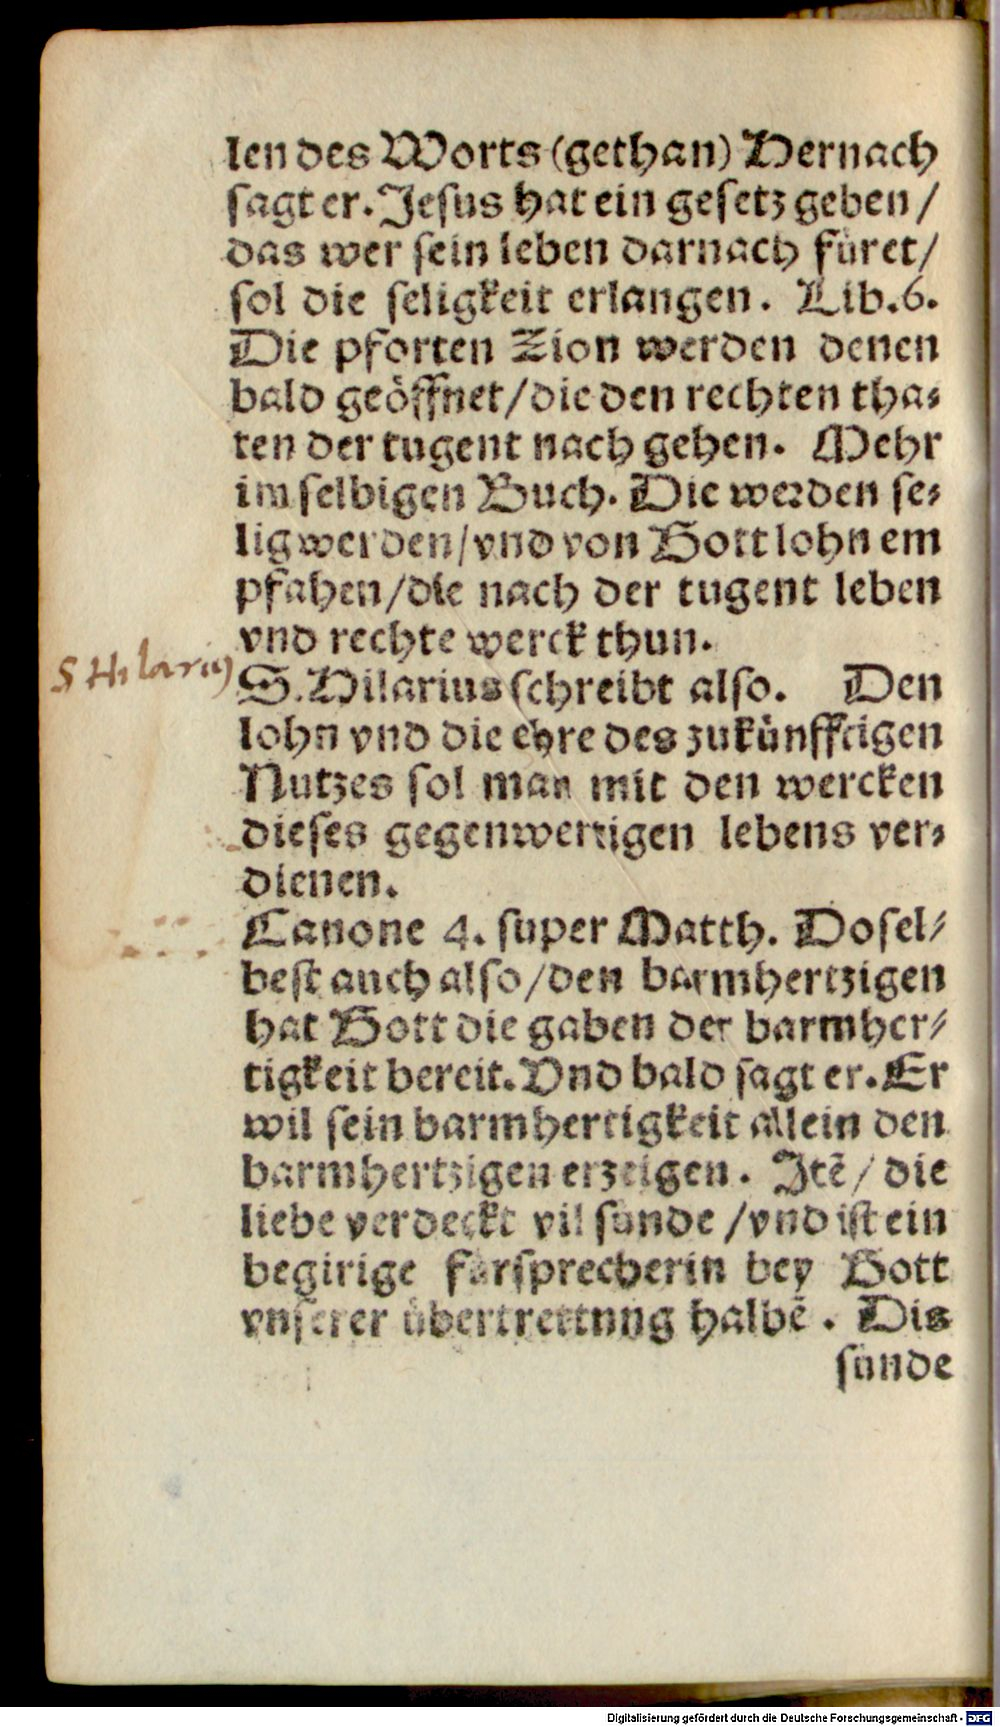 len des Worts (gethan) Hernach
sagt er. Jesus hat ein gesetz geben /
das wer sein leben darnach füret /
sol die seligkeit erlangen. Lib. 6.
Die pforten Zion werden denen
bald geöffnet / die den rechten tha⸗
ten der tugent nach gehen. Mehr
im selbigen Buch. Die werden se⸗
lig werden / vnd von Gott lohn em
pfahen / die nach der tugent leben
vnd rechte werck thun.
S Hilarius
S. Hilarius schreibt also. Den
lohn vnd die ehre des zukünfftigen
Nutzes sol man mit den wercken
dieses gegenwertigen lebens ver⸗
dienen.
Canone 4. super Matth. Dosel⸗
best auch also / den barmhertzigen
hat Gott die gaben der barmher⸗
tigkeit bereit. Vnd bald sagt er. Er
wil sein barmhertigkeit allein den
barmhertzigen erzeigen. Itẽ / die
liebe verdeckt vil sünde / vnd ist ein
begirige fürsprecherin bey Gott
vnserer übertrettnng halbẽ. Dis
sünde
Digitalisierung gefördert durch die Deutsche Forschungsgemeinschaft - DFG